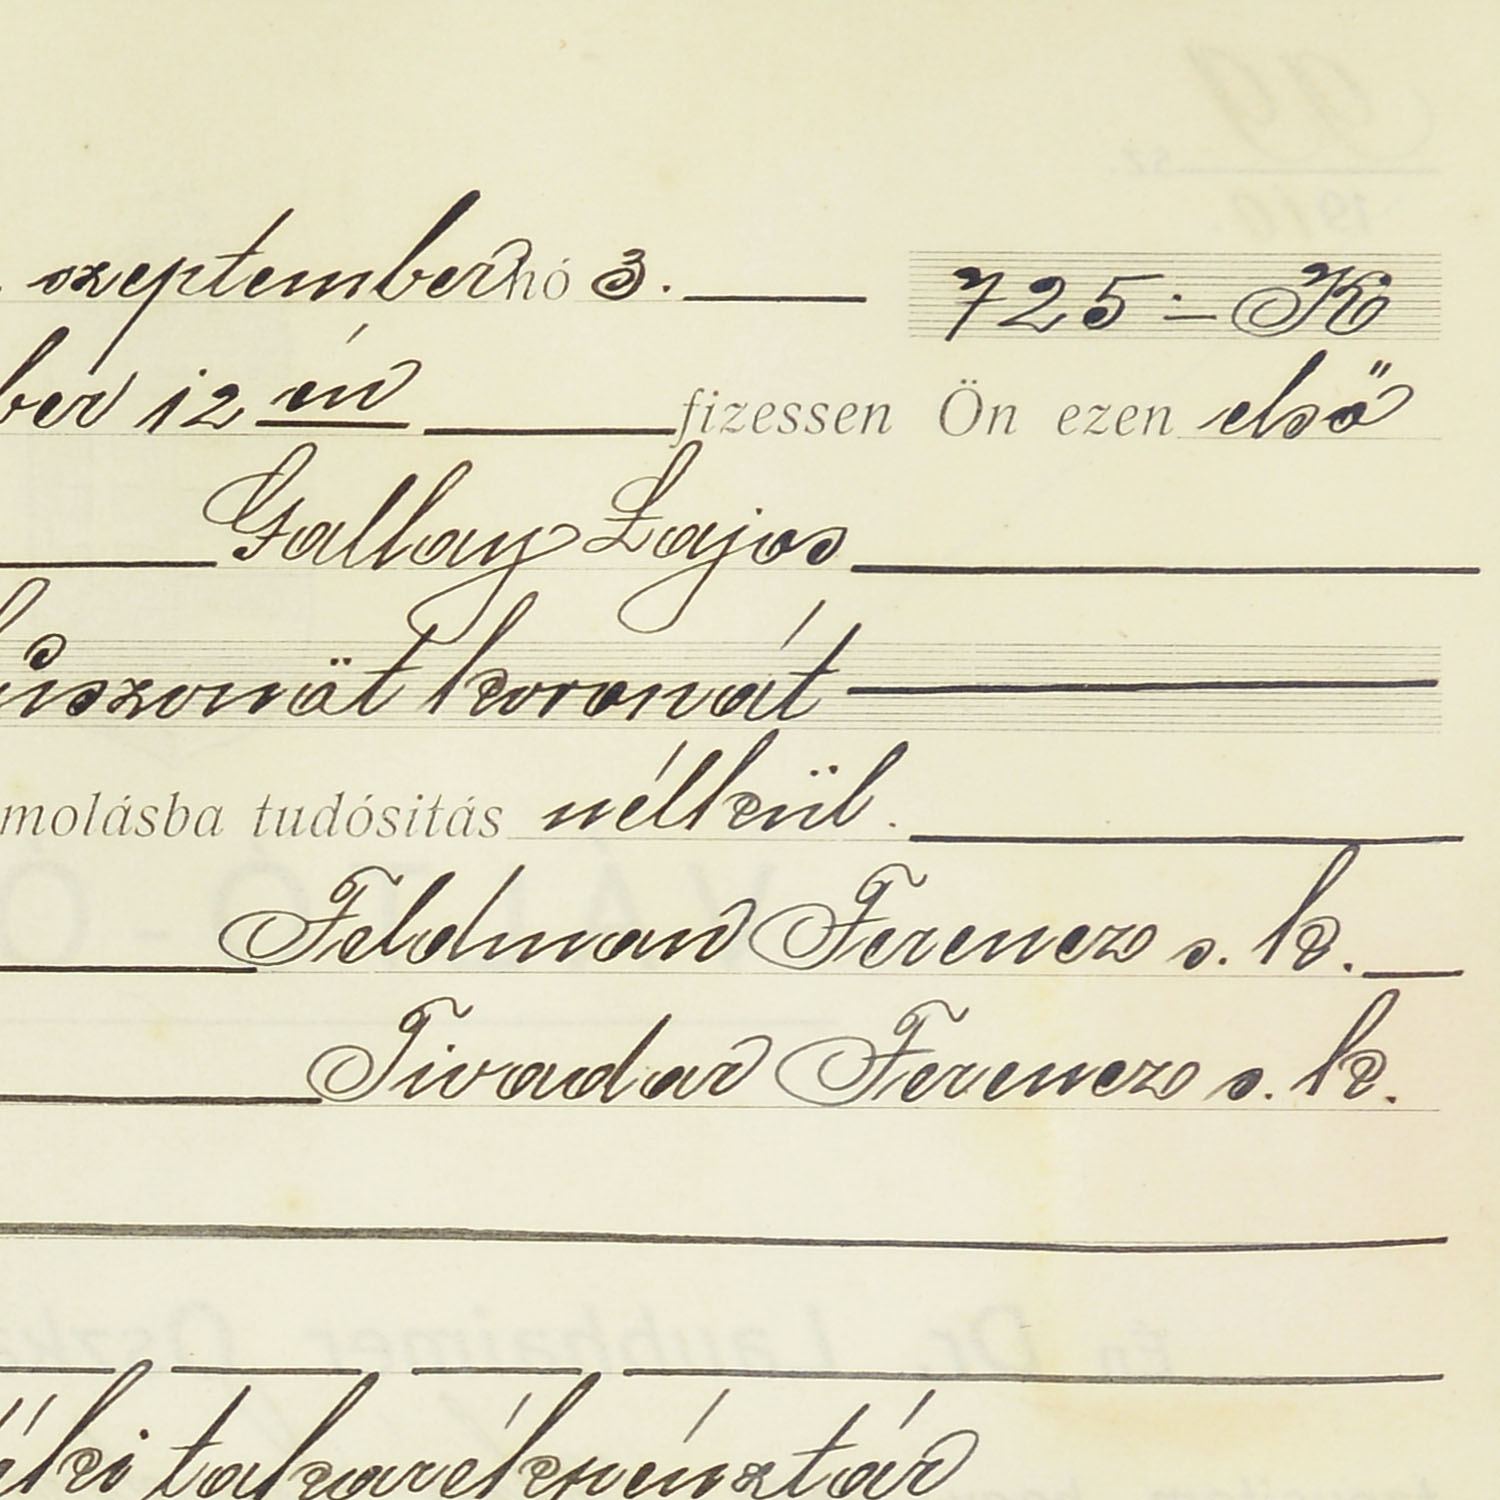 szeptember hó 3. 725 :- K
ber 12 én fizessen Ön ezen első
Gallay Lajos
húszonöt koronát
molásba tudósitás nélkül.
Feldman Ferencz s. k.
Tivadar Ferencz s. k.
éki takarékpénztár